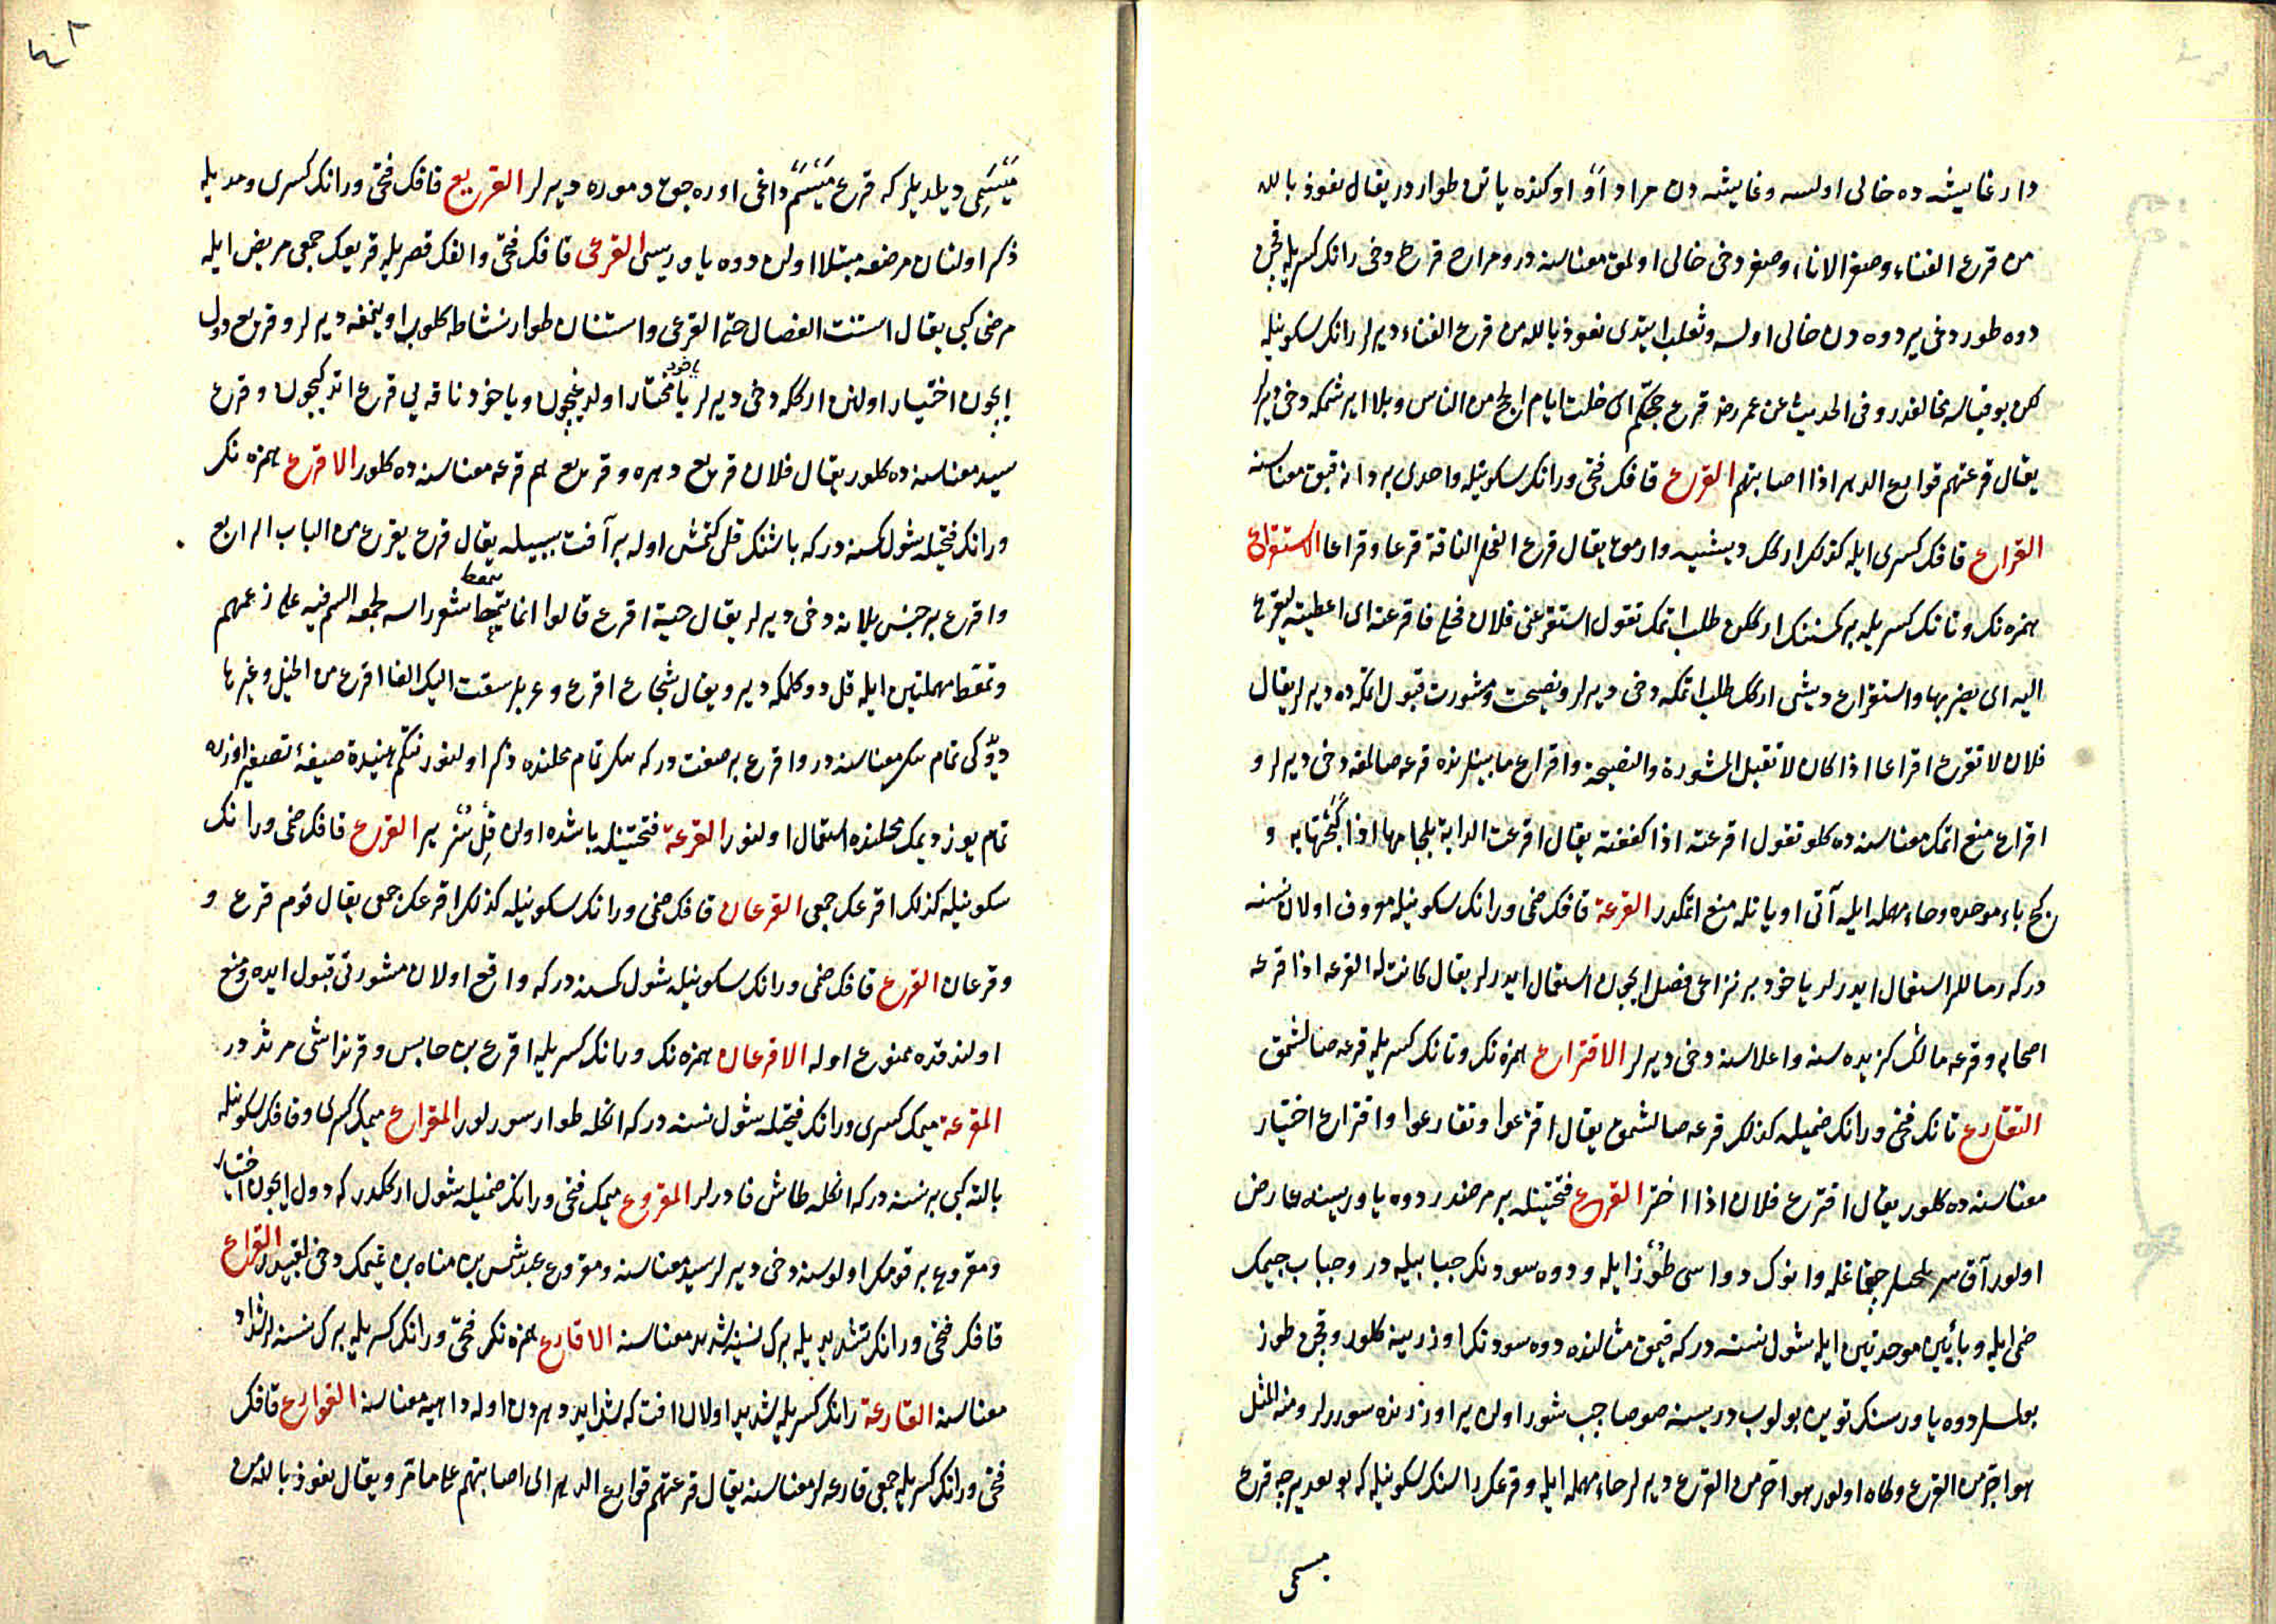 دار غاشیه ده خالی اولسه وغاشیه دن مراد أو اوکنده یاتن طوار در یقال نعوذ بالله
من قرع الفناء وصفر الاناء وصفر دخی خالی اولمق معناسنه در ومراح قرع دخی رانک کسریله
دوه طوردغی یر دوه دن خالی اولسه وثعلب ایتدی نعوذ بالله من قرع الفناء دیرلر رانک سکونیله
لکن بو قیاسه مخالفدر وفی الحدیث عن عمر رضه قرع حجکم ای خلت ایام الحج من الناس وبلا ایرشمکه دخی دیرلر
یقال قرعتهم قوارع الدهر اذا اصابتهم القرع قافک فتحی ورانک سکونیله واحدی بر دانه قبق معناسنه
القراع قافک کسری ایله کذلک ارکک دیشیه وارمق یقال قرع الفحل الناقة قرعا وقراعا الاستقراع
همزه نک وتانک کسریله بر کمسنه نک ارککن طلب اتمک تقول استقرعنی فلان فحلی فاقرعته ای اعطیته لیقرع
الیه ای یضربها واستقراع دیشی ارکک طلب اتمکه دخی دیرلر ونصیحت ومشورت قبول اتمکده دیرلر یقال
فلان لا تقرع اقراعا اذا کان لا تقبل المشورة والنصیحة واقراع مابینلرنده قرعه صالمغه دخی دیرلر و
اقراع منع اتمک معناسنده کلور تقول اقرعته اذا کففته یقال اقرعت الدابة بلجامها اذا کبحتها به و
کبح باء موحده وحاء مهمله ایله آتی اویانله منع اتمکدر القرعة قافک ضمی ورانک سکونیله معروف اولان نسنه
درکه رماللر استعمال ایدرلر یاخود بر نزاعی فصل ایچون استعمال ایدرلر یقال کانت له القرعه اذا قرعه
اصحابه وقرعه مالک کزیده سنه واعلاسنه دخی دیرلر الاقتراع همزه نک وتانک کسریله قرعه صالشمق
التقارع تانک فتحی ورانک ضمیله کذلک قرعه صالشمق یقال اقترعوا وتقارعوا واقتراع اختیار
معناسنه ده کلور یقال اقترع فلان اذا اختر القرع فتحتینله بر مرضدر دوه یاوریسنه عارض
اولور آق سولجلر چقاغله وانوک دواسی طوز ایله ودوه سودنک جبابیله در وجباب جیمک
ضمی ایله وبائین موحدتین ایله شول نسنه درکه قیمق مثالنده دوه سودنک اوزرینه کلور وقچن طوز
بولمسلر دوه یاورسنک توین یولوب دریسنه صو صاچب شور اولن یر اوزرنده سوررلر ومنه المثل
هو احر من القرع وکاه اولور هو احر من القرع دیرلر حاء مهمله ایله وقرعک رانسنک سکونیله که بو تقدیرجه قرع
میسمی
میسمی دیلدیلر که قرع میسم داغی اوره جق دموره دیرلر القریع قافک فتحی ورانک کسری ومدیله
ذکر اولنان مرضه مبتلا اولن دوه یاوریسی القرعی قافک فتحی والفک قصریله قریعک جمعی مریض ایله
مرضی کبی یقال استنت الفصال حتی القرعی واستنان طوار نشاطه کلوب اوینمغه دیرلر وقریع دول
ایچون اختیار اولنن ارککه دخی دیرلر یا مختار اولدیغیچون ویاخود ناقه یی قرع اتدکیچون وقرع
سید معناسنه ده کلور یقال فلان قریع دهره وقریع هم قرعه معناسنه ده کلور الاقرع همزه نک
ورانک فتحیله شول کمسنه درکه باشنک قلی کتمش اوله بر آفت سببیله یقال قرع یقرع من الباب الرابع
واقرع بر جنس یلانه دخی دیرلر یقال حیة اقرع قالوا انما یتمعط شعر راسه لجمعه السم فیه علی زعمهم
وتمعط مهملتین ایله قل دوکلمکه دیر ویقال شجاع اقرع وعربلر سقت الیک الفا اقرع من الخیل وغیرها
دیو کی تمام بیک معناسنه در واقرع بر صفت درکه بیک تمام محلنده ذکر اولنور نتکیم هنیدة صیغه تصغیر اوزره
تمام یوز دیمک محلنده استعمال اولنور القرعة فتحتینله باشده اولن قلسز یر القرع قافک ضمی ورانک
سکونیله کذلک اقرعک جمعی القرعان قافک ضمی ورانک سکونیله کذلک اقرعک جمعی یقال قوم قرع و
وقرعان القرع قافک ضمی ورانک سکونیله شول کمسنه درکه واقع اولان مشورتی قبول ایده ومنع
اولندقده ممنوع اوله الاقرعان همزه نک ورانک کسریله اقرع بن حابس وقرنداشی مرثد در
المقرعة میمک کسری ورانک فتحیله شول نسنه درکه انکله طوار سورلور المقراع میمک کسری وقافک سکونیله
بالته کبی بر نسنه درکه انکله طاش قادرلر المقروع میمک فتحی ورانک ضمیله شول ارککدرکه دول ایچون اختیار
ومقروع بر قومک اولوسنه دخی دیرلر سید معناسنه ومقروع عبد شمس بن مناه بن تمیمک دخی لقبیدر القراع
قافک فتحی ورانک تشدیدیله برک نسنه شدید معناسنه الاقارع همزه نک فتحی ورانک کسریله برک نسنه لر شداد
معناسنه القارعة رانک کسریله شدید اولان آفت که شداید دهردن اوله داهیه معناسنه القوارع قافک
فتحی ورانک کسریله جمعی قارعه لر معناسنه یقال قرعتهم قوارع الدهر ای اصابتهم علی ما مر ویقال نعوذ بالله من